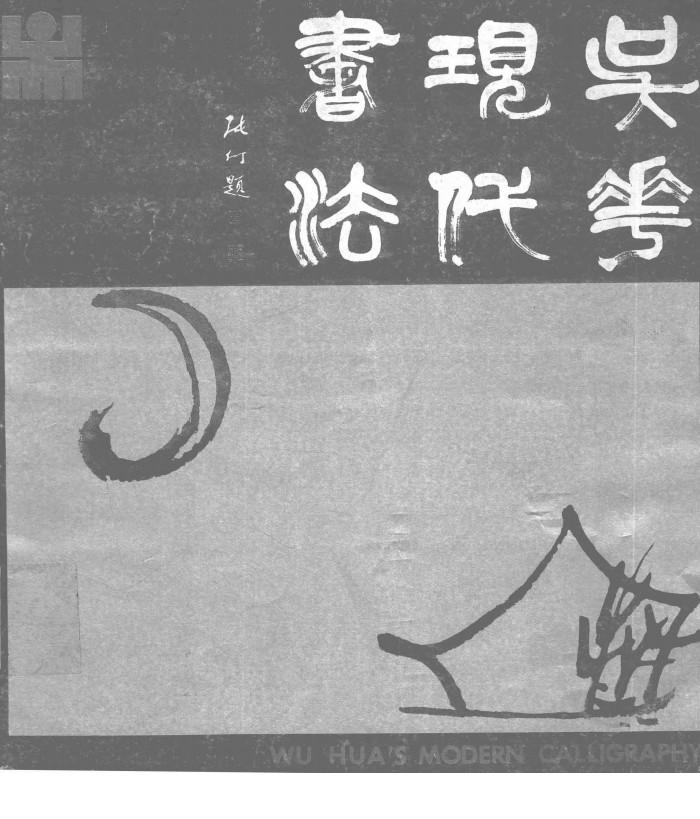 吳華
現代
書法
張仃題
WU HUA'S MODERN CALLIGRAPHY